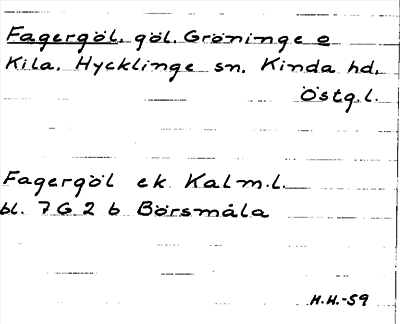 Fagergöl, göl, Gröninge o
Kila, Hycklinge sn. Kinda hd.
Östg.l.
Fagergöl ek Kalm.l.
bl. 7 G 2 b Börsmåla
H.H.-59